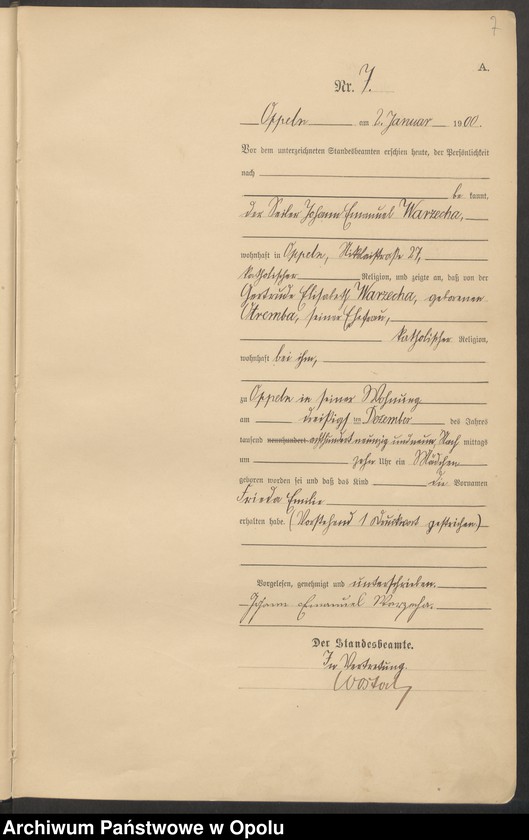 7
A.
Nr. 7.
Oppeln am 2. Januar 1900.
Vor dem unterzeichneten Standesbeamten erschien heute, der Persönlichkeit
nach
be kannt,
der Seiler Johann Emanuel Warzecha,
wohnhaft in Oppeln, Nikolaistraße 27,
katholischer Religion, und zeigte an, daß von der
Gertrude Elisabeth Warzecha, geborenen
Aremba, seiner Ehefrau,
katholischer Religion,
wohnhaft bei ihm,
zu Oppeln in seiner Wohnung
am dreißigsten Dezember des Jahres
tausend neunhundert achthundert neunzig und neun, Nach mittags
um zehn Uhr ein Mädchen
geboren worden sei und daß das Kind die Vornamen
Frieda Emilie
erhalten habe. (Vorstehend 1 Druckwort gestrichen)
Vorgelesen, genehmigt und unterschrieben.
Johann Emanuel Warzecha.
Der Standesbeamte.
In Vertretung.
Archiwum Państwowe w Opolu